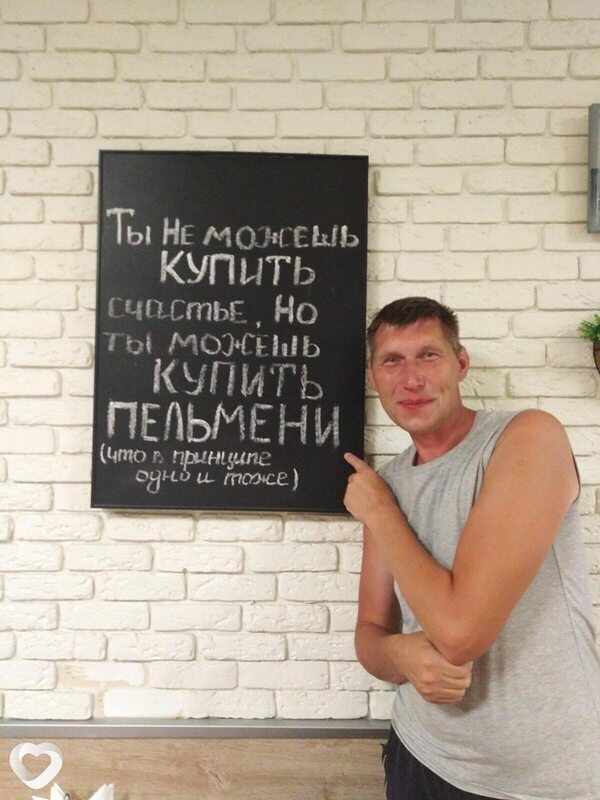 Ты не можешь
КУПИТЬ
счастье, но
ты можешь
КУПИТЬ
ПЕЛЬМЕНИ
(что в принципе
одно и тоже)